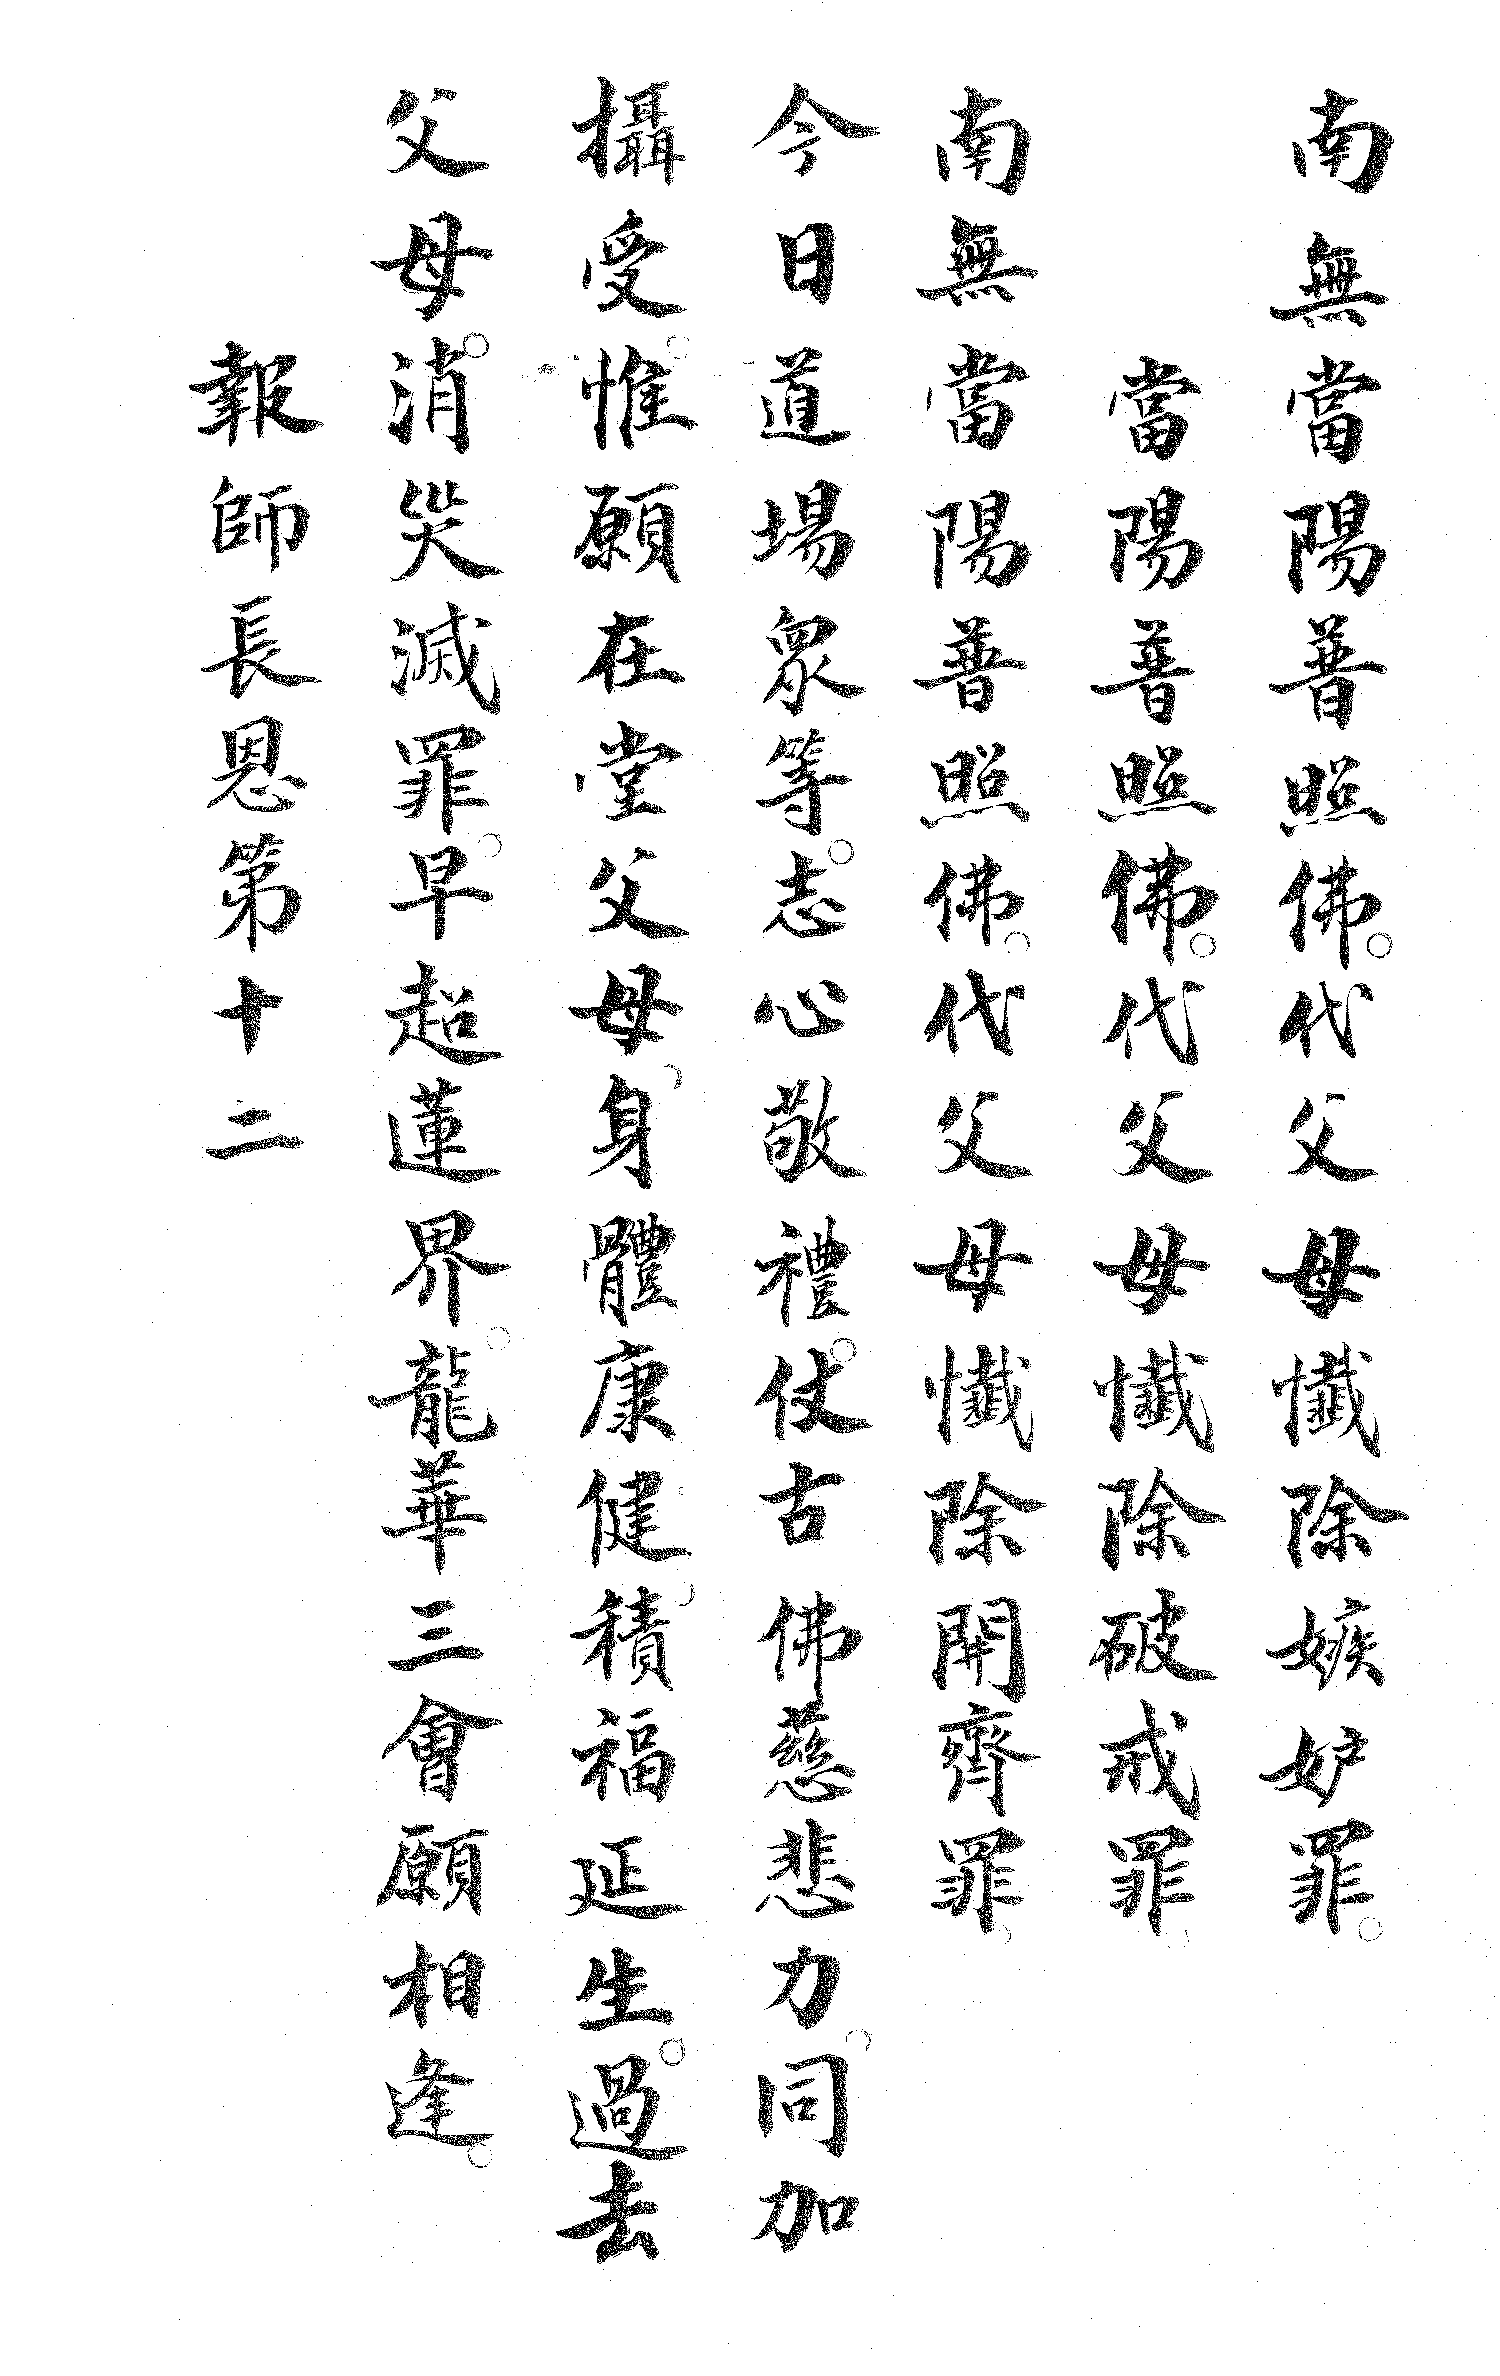 南無當陽普照佛。代父母懺除嫉妒罪。
當陽普照佛。代父母懺除破戒罪。
南無當陽普照佛。代父母懺除開齊罪。
今日道場眾等。志心敬禮。仗古佛慈悲力。同加
攝受。惟願在堂父母。身體康健。積福延生。過去
父母。消災滅罪。早超蓮界。龍華三會願相逢。
報師長恩第十二